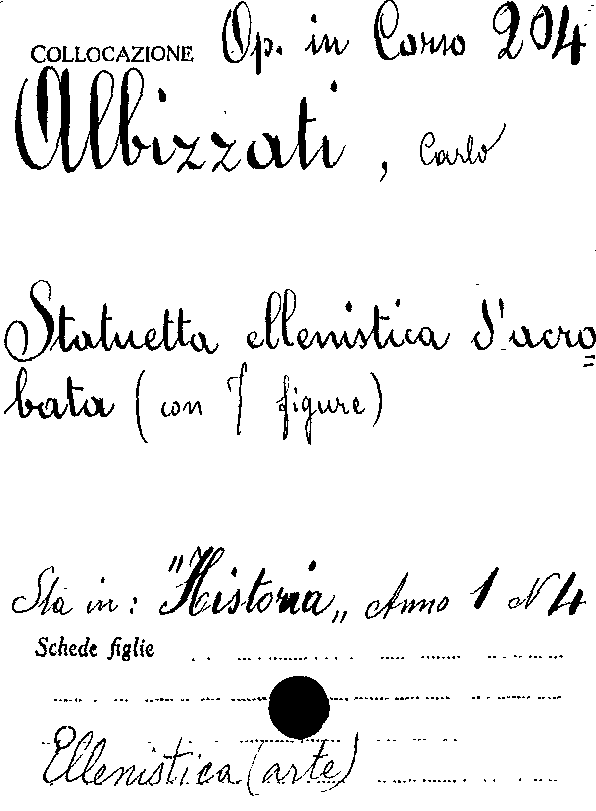 COLLOCAZIONE Op. in Corso 204
Albizzati, Carlo
Statuetta ellenistica d'acro=
bata (con 7 figure)
Sta in: "Historia„ Anno 1 N 4
Schede figlie
Ellenistica (arte)